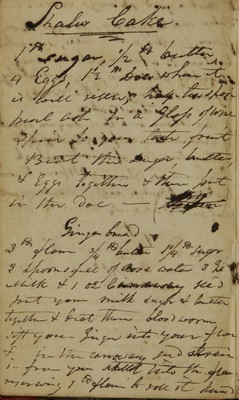 Shaker Cakes
1 lb sugar 1/2 lb butter
4 Eggs, 1 1/2
is well risen,
pearl ash in a Glass of wine
Spice to your taste fruit
Beat the sugar, butter,
& Eggs together & then put
in the Doe
Gingerbread
3 lb flour 3/4 lb butter 1 1/4 lb sugar
2 Spoonsful of rose water 3
Milk & 1 oz Carraway seed
put your milk sugar & butter
together & beat them blood warm
sift your Ginger into your flour
& put the carraway seed strain
it from your skillet into the flour
reserving 1 lb flour to roll it hard